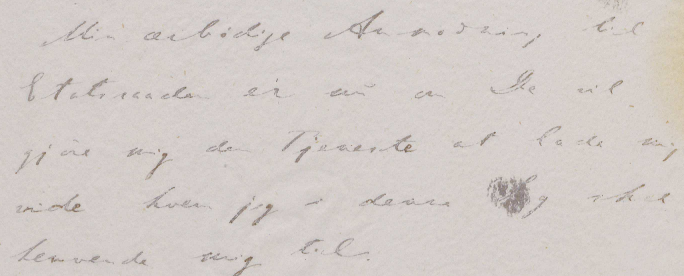 Min ærbødige Anmodning til
Etatsraaden er nu om De vil
gjøre mig den Tjeneste at lade mig
vide hvem jeg i denne skal
henvende mig til.